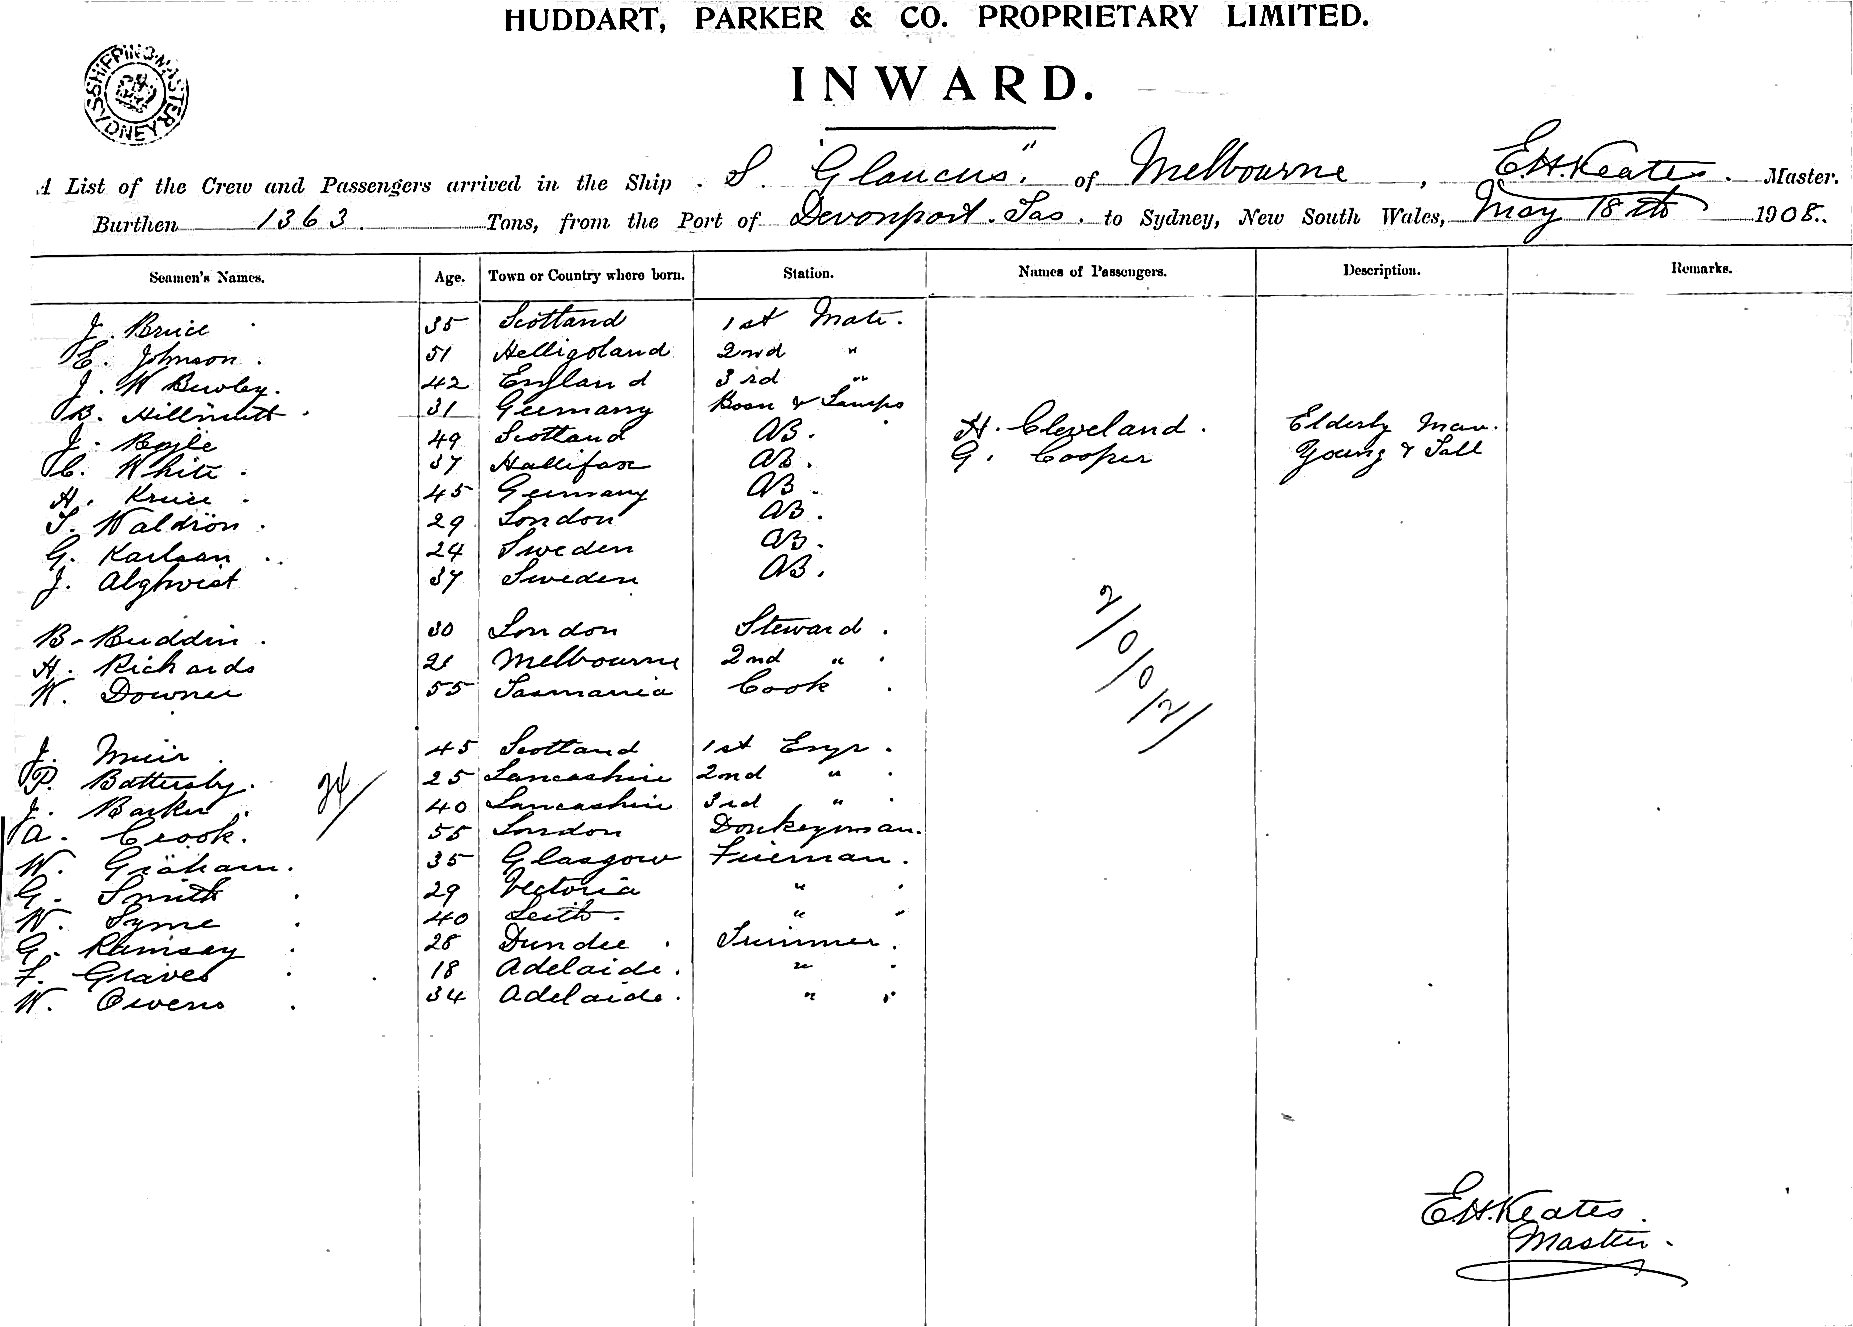 HUDDART, PARKER & CO. PROPRIETARY LIMITED.
INWARD.
SHIPPING MASTER SYDNEY
A List of the Crew and Passengers arrived in the Ship S. "Glaucus" of Melbourne, E.H. Keates. Master.
Burthen 1363 Tons, from the Port of Devonport. Tas. to Sydney, New South Wales, May 18th 1908.
Seamen's Names. Age. Town or Country where born. Station. Names of Passengers. Description. Remarks.
J. Bruce 35 Scotland 1st Mate.
E. Johnson. 51 Helligoland 2nd "
J. W Bewley. 42 England 3rd "
B. Hillmutt. 31 Germany Bosn & Lamps
J. Boyle 49 Scotland AB. H. Cleveland. Elderly Man.
C. White. 37 Hallifax AB. G. Cooper Young & Tall
H. Kruee. 45 Germany AB.
T. Waldron. 29 London AB.
G. Karlson. 24 Sweden AB.
J. Alghvist 37 Sweden AB.
B. Buddin. 30 London Steward.
H. Richards 21 Melbourne 2nd "
W. Downer 55 Tasmania Cook
2/0/0/2/
J. Muir. 45 Scotland 1st Engr.
P. Battersby. 25 Lancashire 2nd "
24/
J. Barker. 40 Lancashire 3rd "
A. Crook. 55 London Donkeyman.
W. Graham. 35 Glasgow Fireman.
G. Smith 29 Victoria "
W. Syme 40 Leith. "
G. Ramsay 28 Dundee Trimmer.
F. Graves 18 Adelaide. "
W. Owens 34 Adelaide. "
E.H. Keates.
Master.